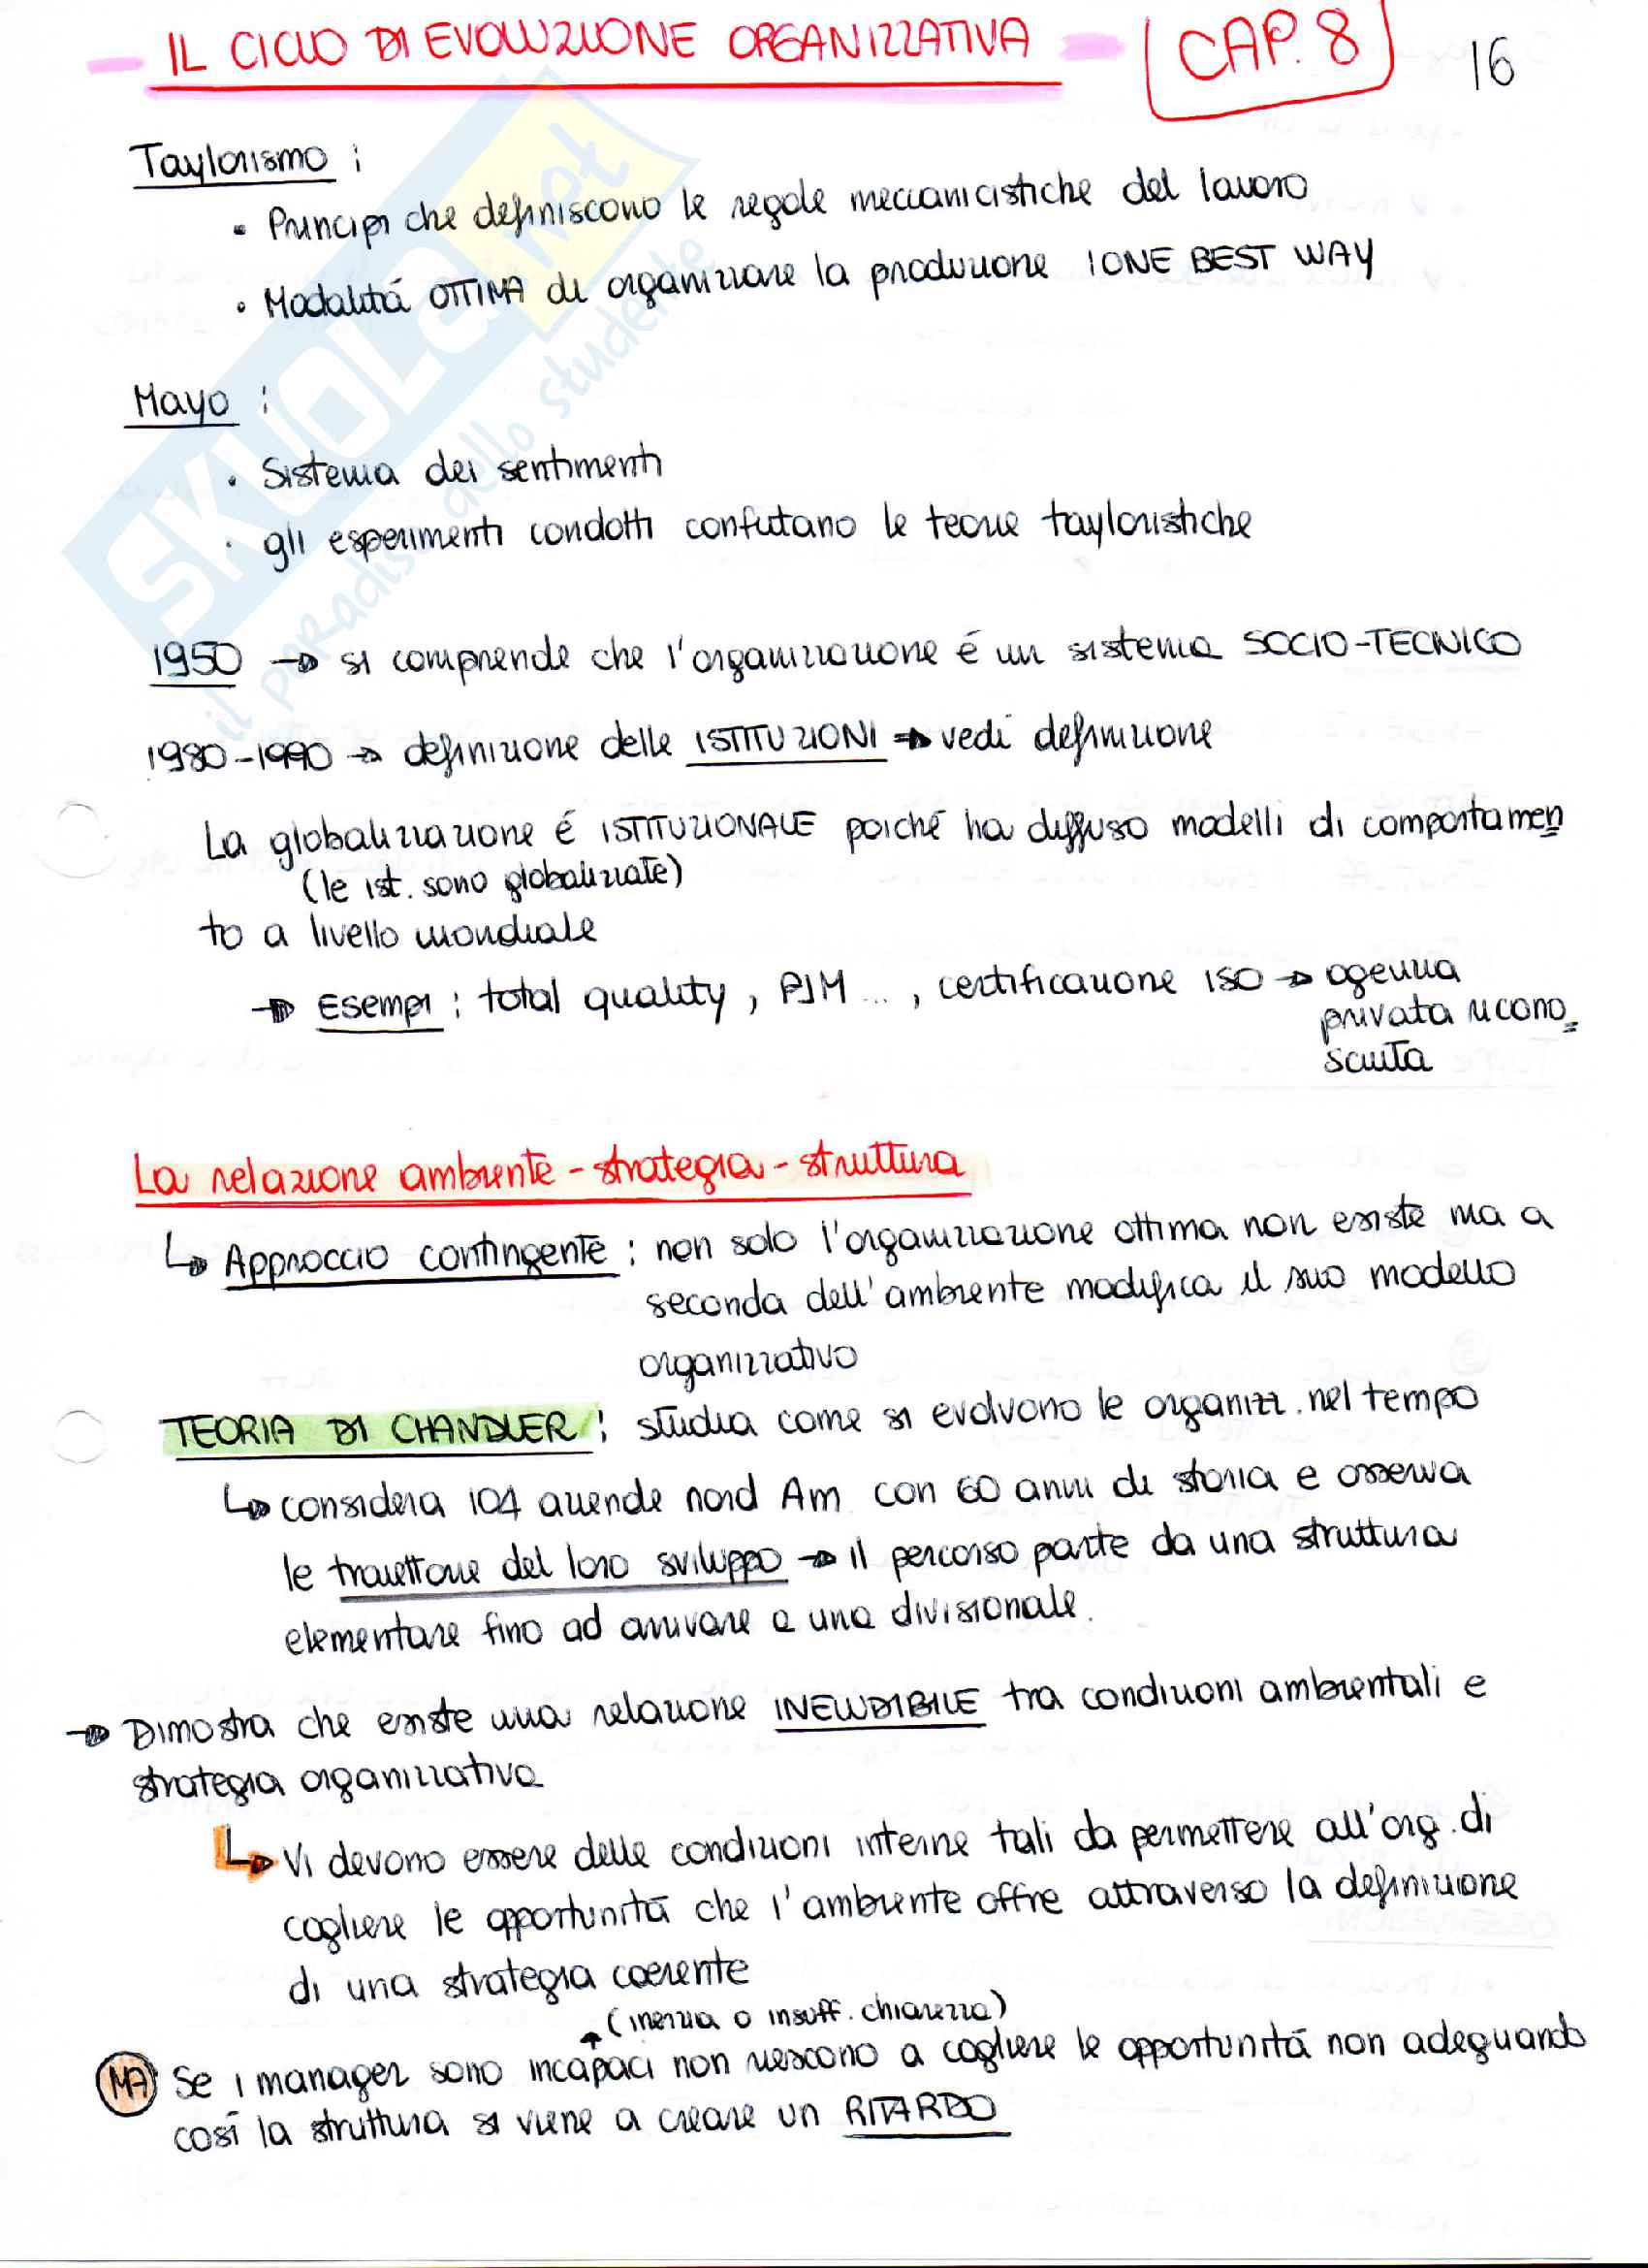 IL CICLO DI EVOLUZIONE ORGANIZZATIVA CAP. 8 16
Taylorismo :
• Principi che definiscono le regole meccanicistiche del lavoro
• Modalitá OTTIMA di organizzare la produzione | ONE BEST WAY
Mayo :
• Sistema dei sentimenti
• gli esperimenti condotti confutano le teorie tayloristiche
1950 → si comprende che l'organizzazione é un sistema SOCIO-TECNICO
1980-1990 → definizione delle ISTITUZIONI → vedi definizione
La globalizzazione é ISTITUZIONALE poiché ha diffuso modelli di comportamen
(le ist. sono globalizzate)
to a livello mondiale
→ Esempi : total quality, PJM ... , certificazione ISO → agenzia
privata ricono
sciuta
La relazione ambiente - strategia - struttura
↳ Approccio contingente : non solo l'organizzazione ottima non esiste ma a
seconda dell'ambiente modifica il suo modello
organizzativo
TEORIA DI CHANDLER : studia come si evolvono le organizz. nel tempo
↳ considera 104 aziende nord Am con 60 anni di storia e osserva
le traiettorie del loro sviluppo → il percorso parte da una struttura
elementare fino ad arrivare a una divisionale.
→ Dimostra che esiste una relazione INELUDIBILE tra condizioni ambientali e
strategia organizzativa
↳ Vi devono essere delle condizioni interne tali da permettere all'org. di
cogliere le opportunitá che l'ambiente offre attraverso la definizione
di una strategia coerente
(inerzia o insuff. chiarezza)
MA Se i manager sono incapaci non riescono a cogliere le opportunitá non adeguando
cosí la struttura si viene a creare un RITARDO
SKUOLA.net
il paradiso dello studente